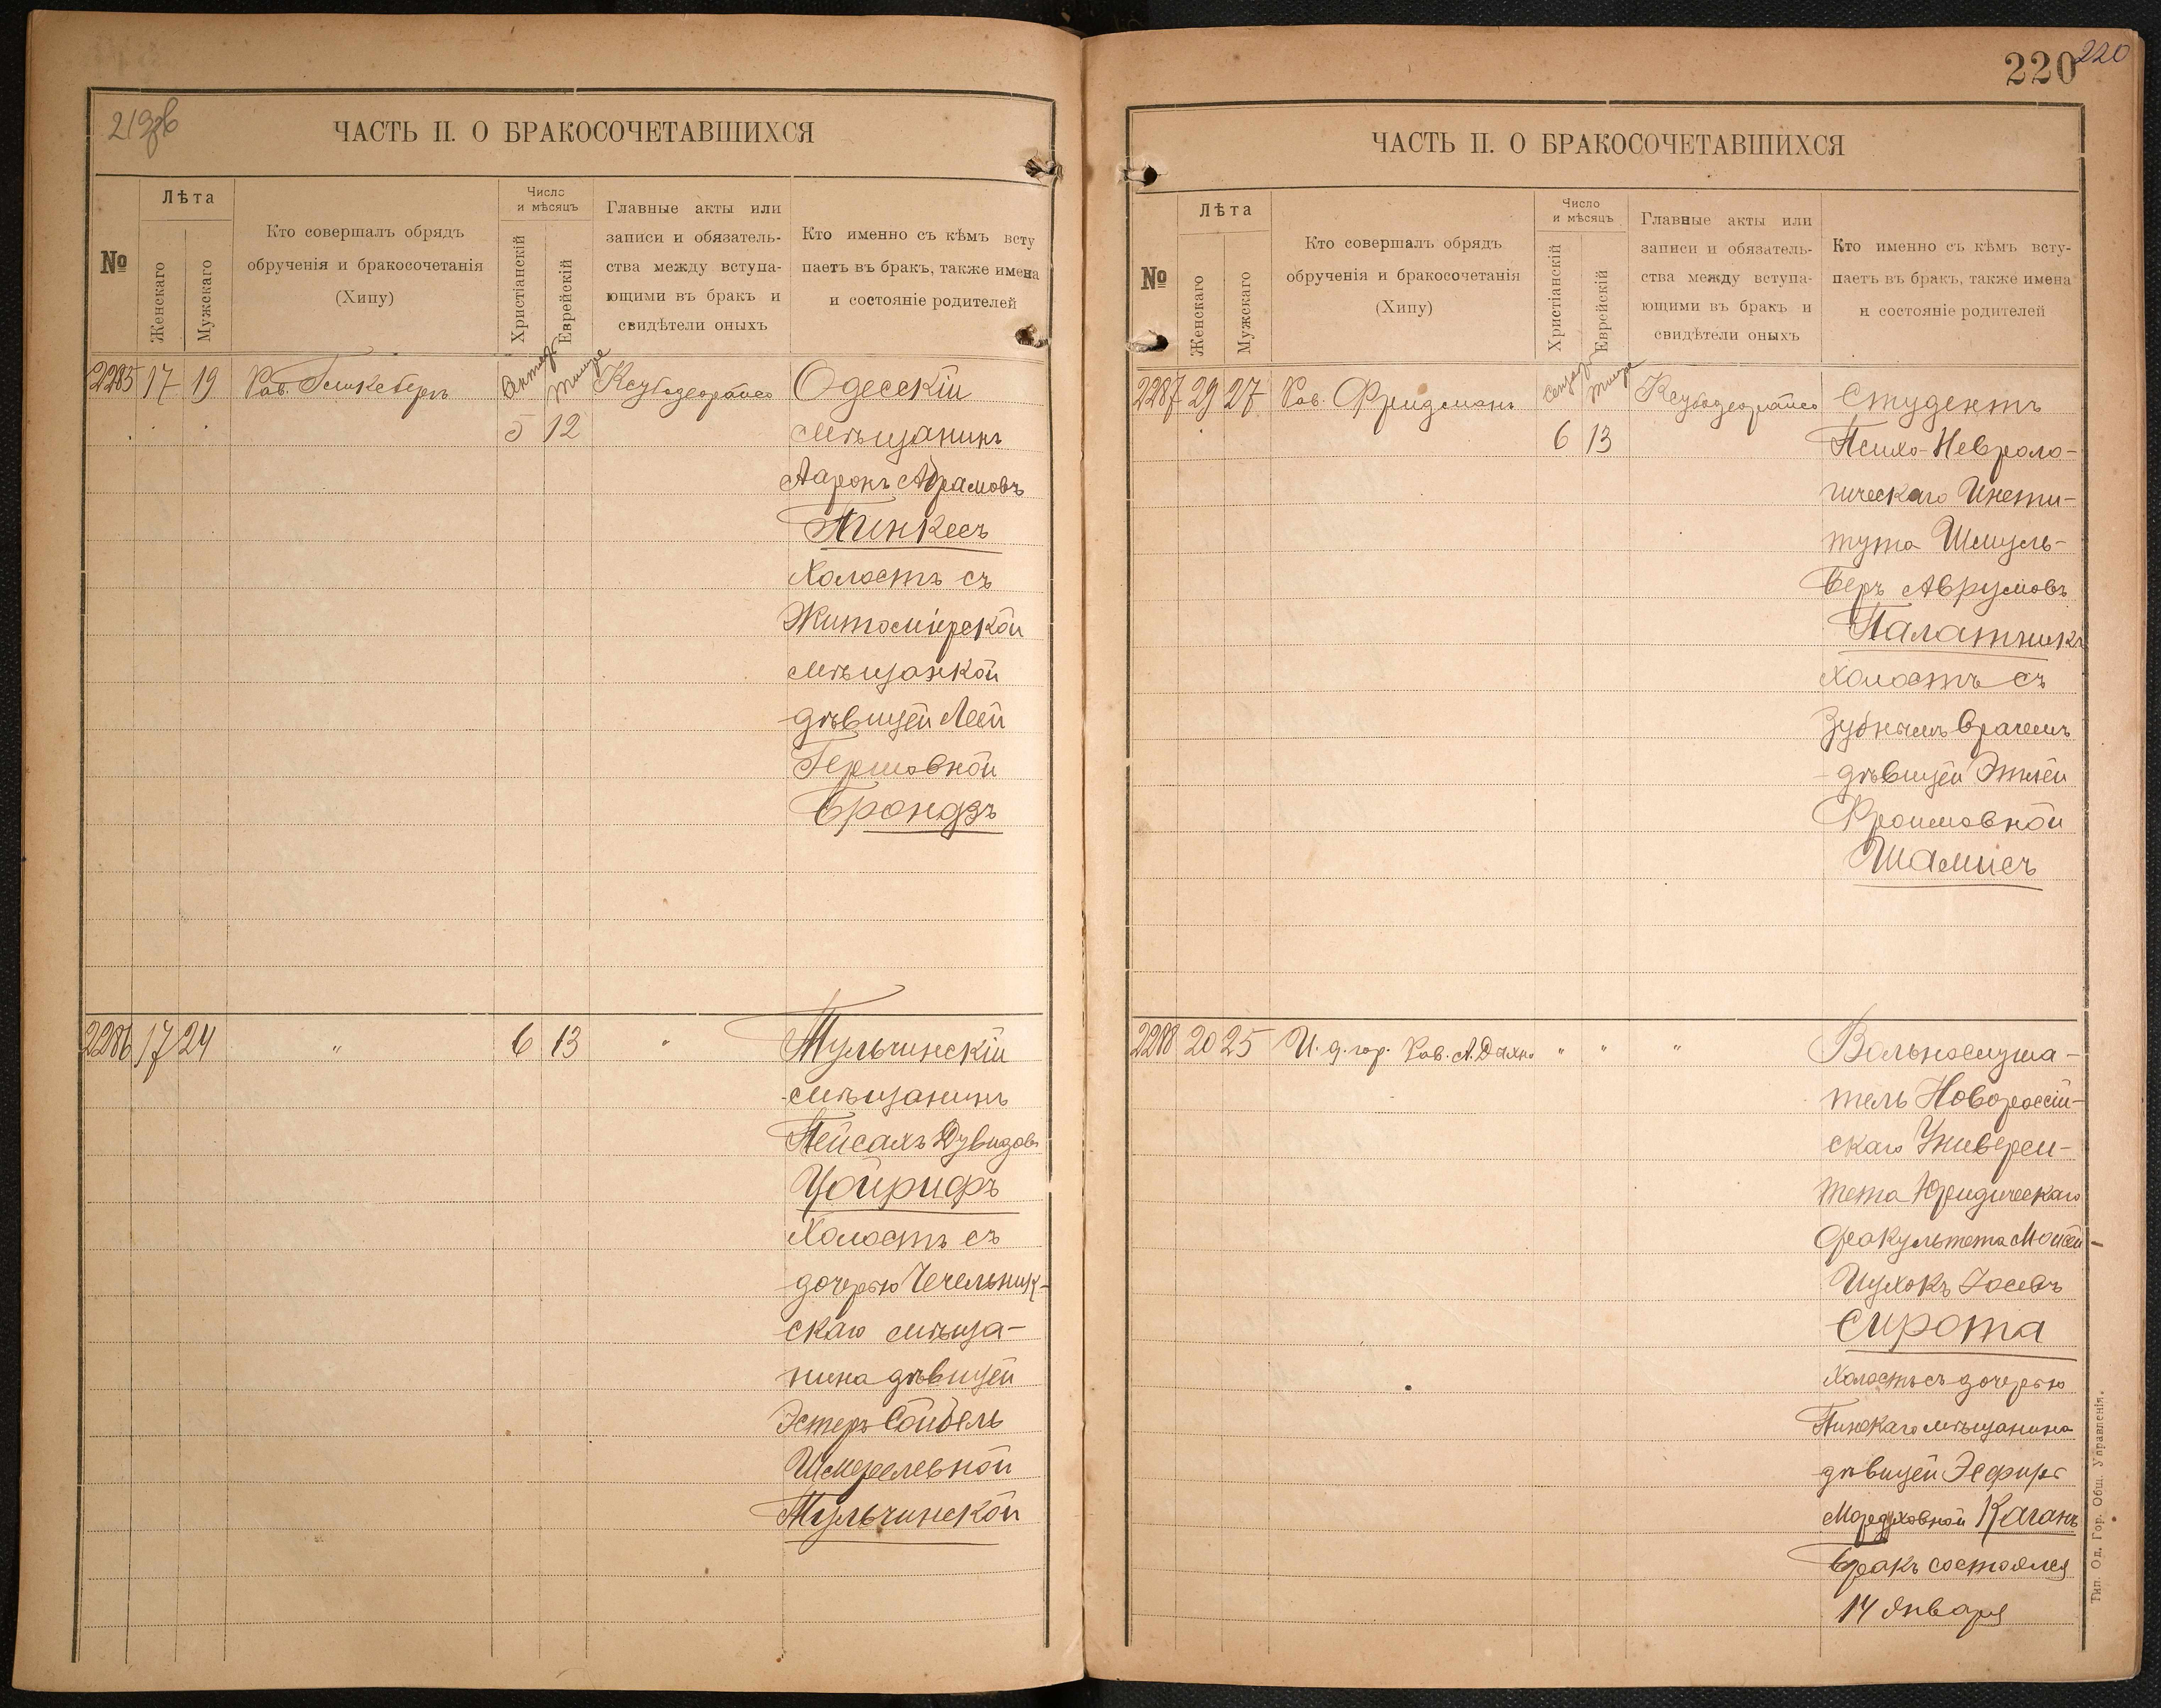 219об
ЧАСТЬ II. О БРАКОСОЧЕТАВШИХСЯ
№
Лѣта
Женскаго
Мужскаго
Кто совершалъ обрядъ
обрученія и бракосочетанія
(Хипу)
Число
и мѣсяцъ
Христіанскій
Еврейскій
Главные акты или
записи и обязатель-
ства между вступа-
ющими въ бракъ и
свидѣтели оныхъ
Кто именно съ кѣмъ всту
паетъ въ бракъ, также имена
и состояніе родителей
2285 17 19 Рав. 5 12
Одесскій
мѣщанинъ
Ааронъ Абрамовъ
Пинкесъ
Холостъ съ
Житомірской
мѣщанкой
дѣвицей Леей
Гершовной
Брондзъ
2286 17 24 " 6 13 "
Тульчинскій
мѣщанинъ
Пейсахъ Дувидовъ
Цойрифъ
Холостъ съ
дочерью Чечельниц-
скаго мѣща-
нина дѣвицей
Эстеръ Сойбель
Шмерелевной
Тульчинской
220 220
ЧАСТЬ II. О БРАКОСОЧЕТАВШИХСЯ
№
Лѣта
Женскаго
Мужскаго
Кто совершалъ обрядъ
обрученія и бракосочетанія
(Хипу)
Число
и мѣсяцъ
Христіанскій
Еврейскій
Главные акты или
записи и обязатель-
ства между вступа-
ющими въ бракъ и
свидѣтели оныхъ
Кто именно съ кѣмъ всту-
паетъ въ бракъ, также имена
и состояніе родителей
2287 29 27 Рав. Фридманъ 6 13
Студентъ
Психо-Невроло-
гическаго Инсти-
тута Шмуль-
Беръ Аврумовъ
Палатникъ
холостъ съ
Зубнымъ врачемъ
дѣвицей Этлей
Фроимовной
Шамисъ
2288 20 25 И. д. гор. Рав. А. Дыхно " " "
Вольнослуша-
тель Новороссій-
скаго Универси-
тета Юридическаго
факультета Мойсей-
Ицхокъ Іосевъ
Сирота
Холостъ съ дочерью
Пинскаго мѣщанина
дѣвицей Эсфирь
Мордуховной Каганъ
Бракъ состоялся
14 Января
Тип. Од. Гор. Общ. Управленія.